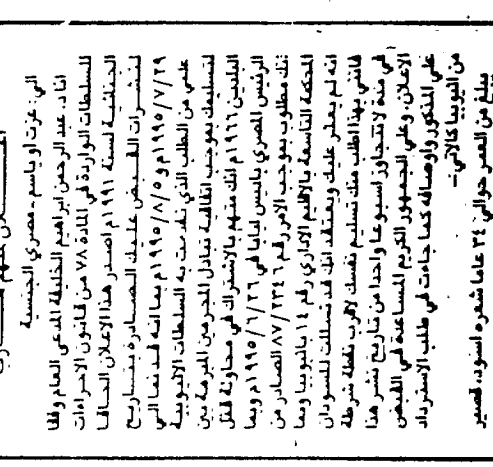 الى : عزت او ياسم - مصري الجنسية
انا د. عبد الرحمن ابراهيم الخليفة المدعى العام وفقا
للسلطات الواردة في المادة ٧٨ من قانون الاجراءات
الجنائية لسنة ١٩٩١م اصدر هذا الاعلان الحاقا
لنشرات القبض عليك الصادرة بتاريخ
١٩٩٥/٧/٢٩م و ١٩٩٥/٨/٥م بما انه قد نما الى
علمي من الطلب الذي تقدمت به السلطات الاثيوبية
لتسليمك بموجب اتفاقية تبادل المجرمين المبرمة بين
البلدين ١٩٦٦م انك متهم بالاشتراك في محاولة قتل
الرئيس المصري باديس ابابا في ١٩٩٥/٦/٢٦م وبما
انك مطلوب بموجب الامر رقم ٨٧/٢٣٤٦ الصادر من
المحكمة التاسعة بالاقليم الاداري رقم ١٤ باثيوبيا وبما
انه لم يعثر عليك ويعتقد انك قد تسللت للسودان
فانني بهذا اطلب منك تسليم نفسك لاقرب نقطة شرطة
في مدة لا تتجاوز اسبوعا واحدا من تاريخ نشر هذا
الاعلان، وعلى الجمهور الكريم المساعدة في القبض
على المذكور واوصافه كما جاءت في طلب الاسترداد
من اثيوبيا كالاتي :-
يبلغ من العمر حوالي ٣٤ عاما شعره اسود، قصير